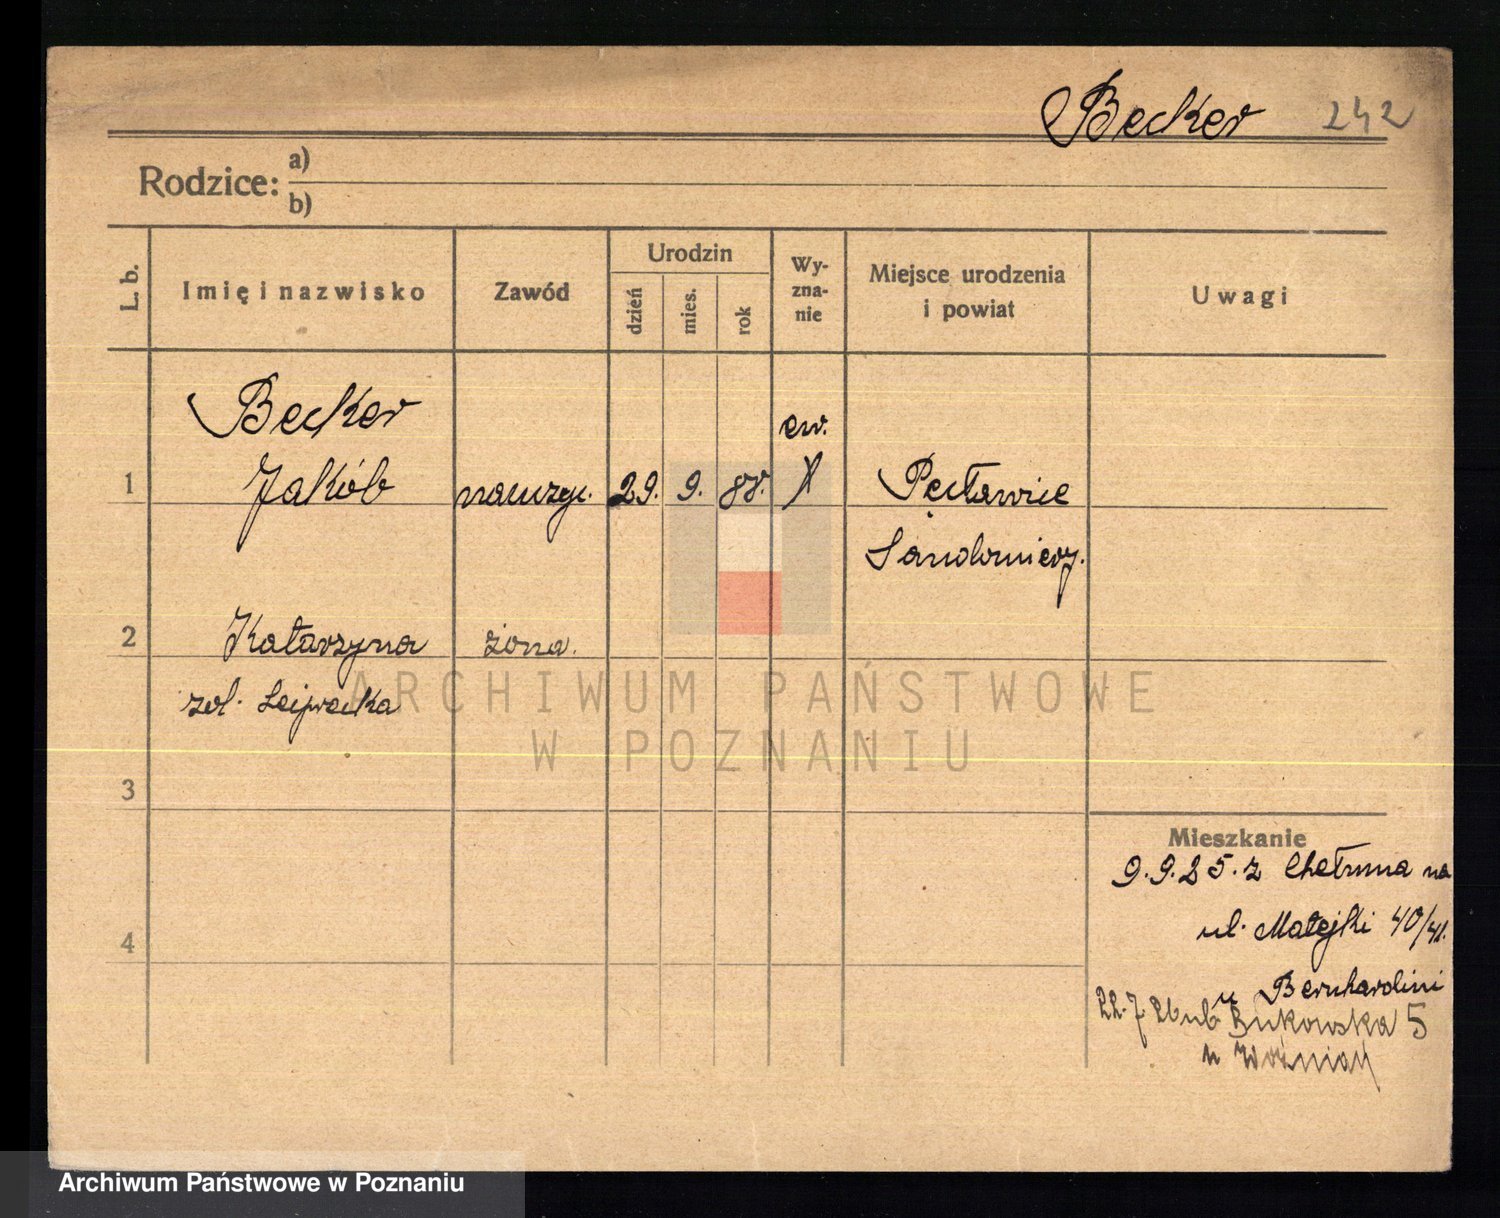 Becker 242
Rodzice: a)
b)
L. b.
Imię i nazwisko
Zawód
Urodzin
dzień
mies.
rok
Wy-
zna-
nie
Miejsce urodzenia
i powiat
Uwagi
Becker
ew.
1 Jakób nauczyc. 29. 9. 88. Pęcławice
Sandomierz.
2 Katarzyna żona.
3
4
Mieszkanie
9.9.25. z Chełmna na
ul. Matejki 40/41.
u Bernhardini
22.7 26 ul Bukowska 5
u Woźniak
ARCHIWUM PAŃSTWOWE
W POZNANIU
Archiwum Państwowe w Poznaniu